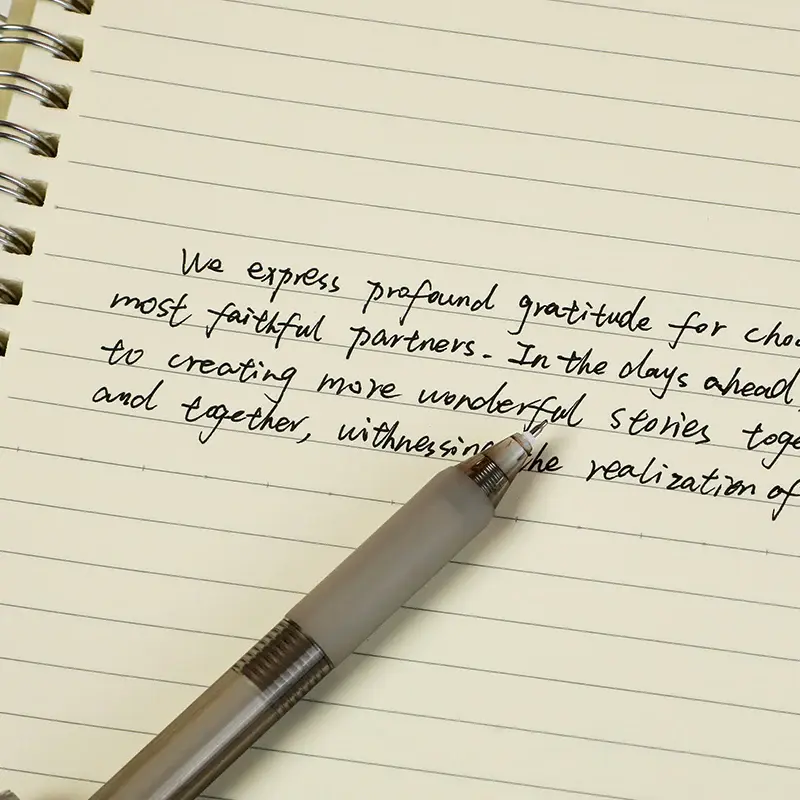 We express profound gratitude for cho
most faithful partners. In the days ahead,
to creating more wonderful stories toge
and together, withnessing the realization of